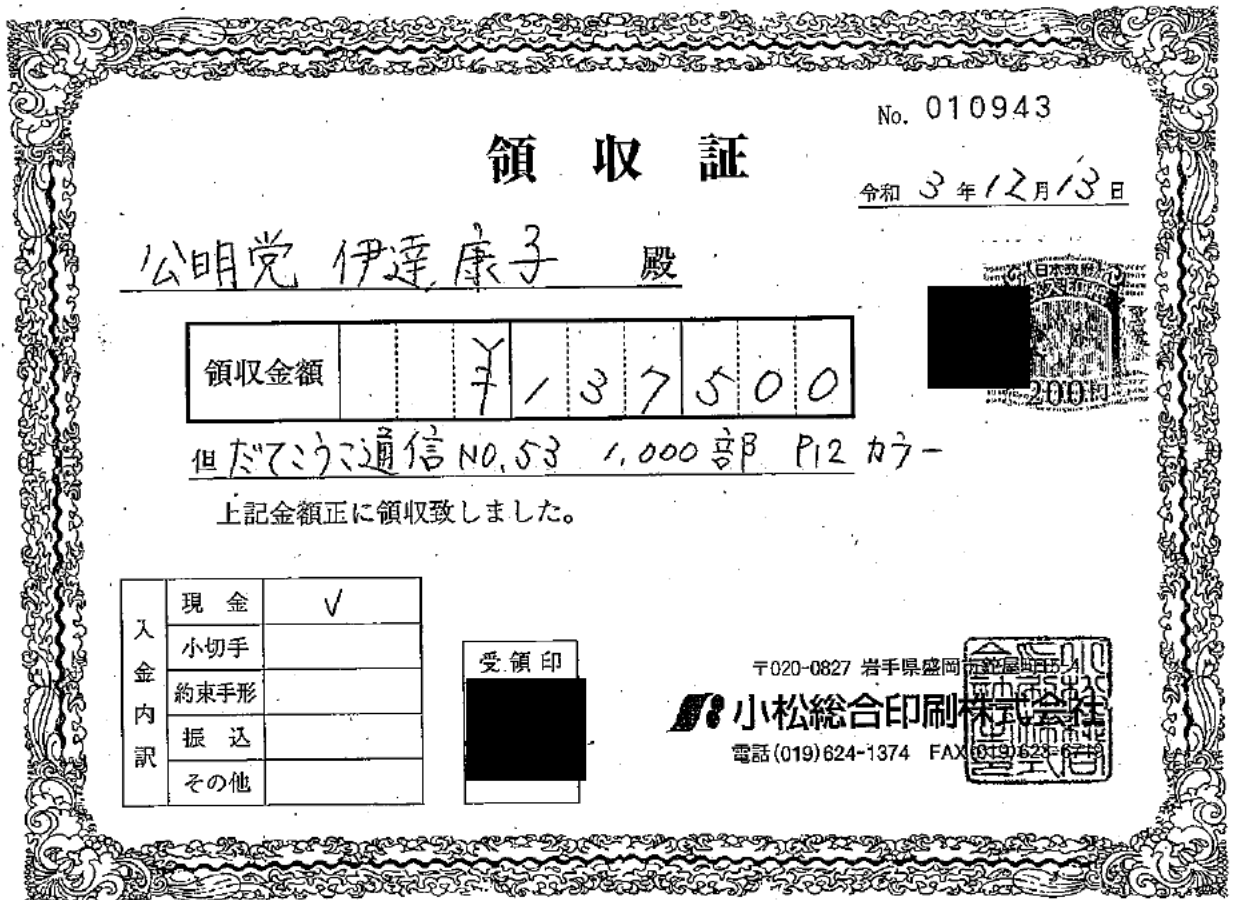 No. 010943
領収証
令和 3年12月13日
公明党 伊達康子 殿
領収金額 ¥137500
但 だてこうこ通信 NO.53 1,000部 P12 カラー
上記金額正に領収致しました。
入金内訳
現金 ✓
小切手
約束手形
振込
その他
受領印
日本政府
200円
〒020-0827 岩手県盛岡市鉈屋町15-4
小松総合印刷株式会社
電話(019)624-1374 FAX(019)623-6719